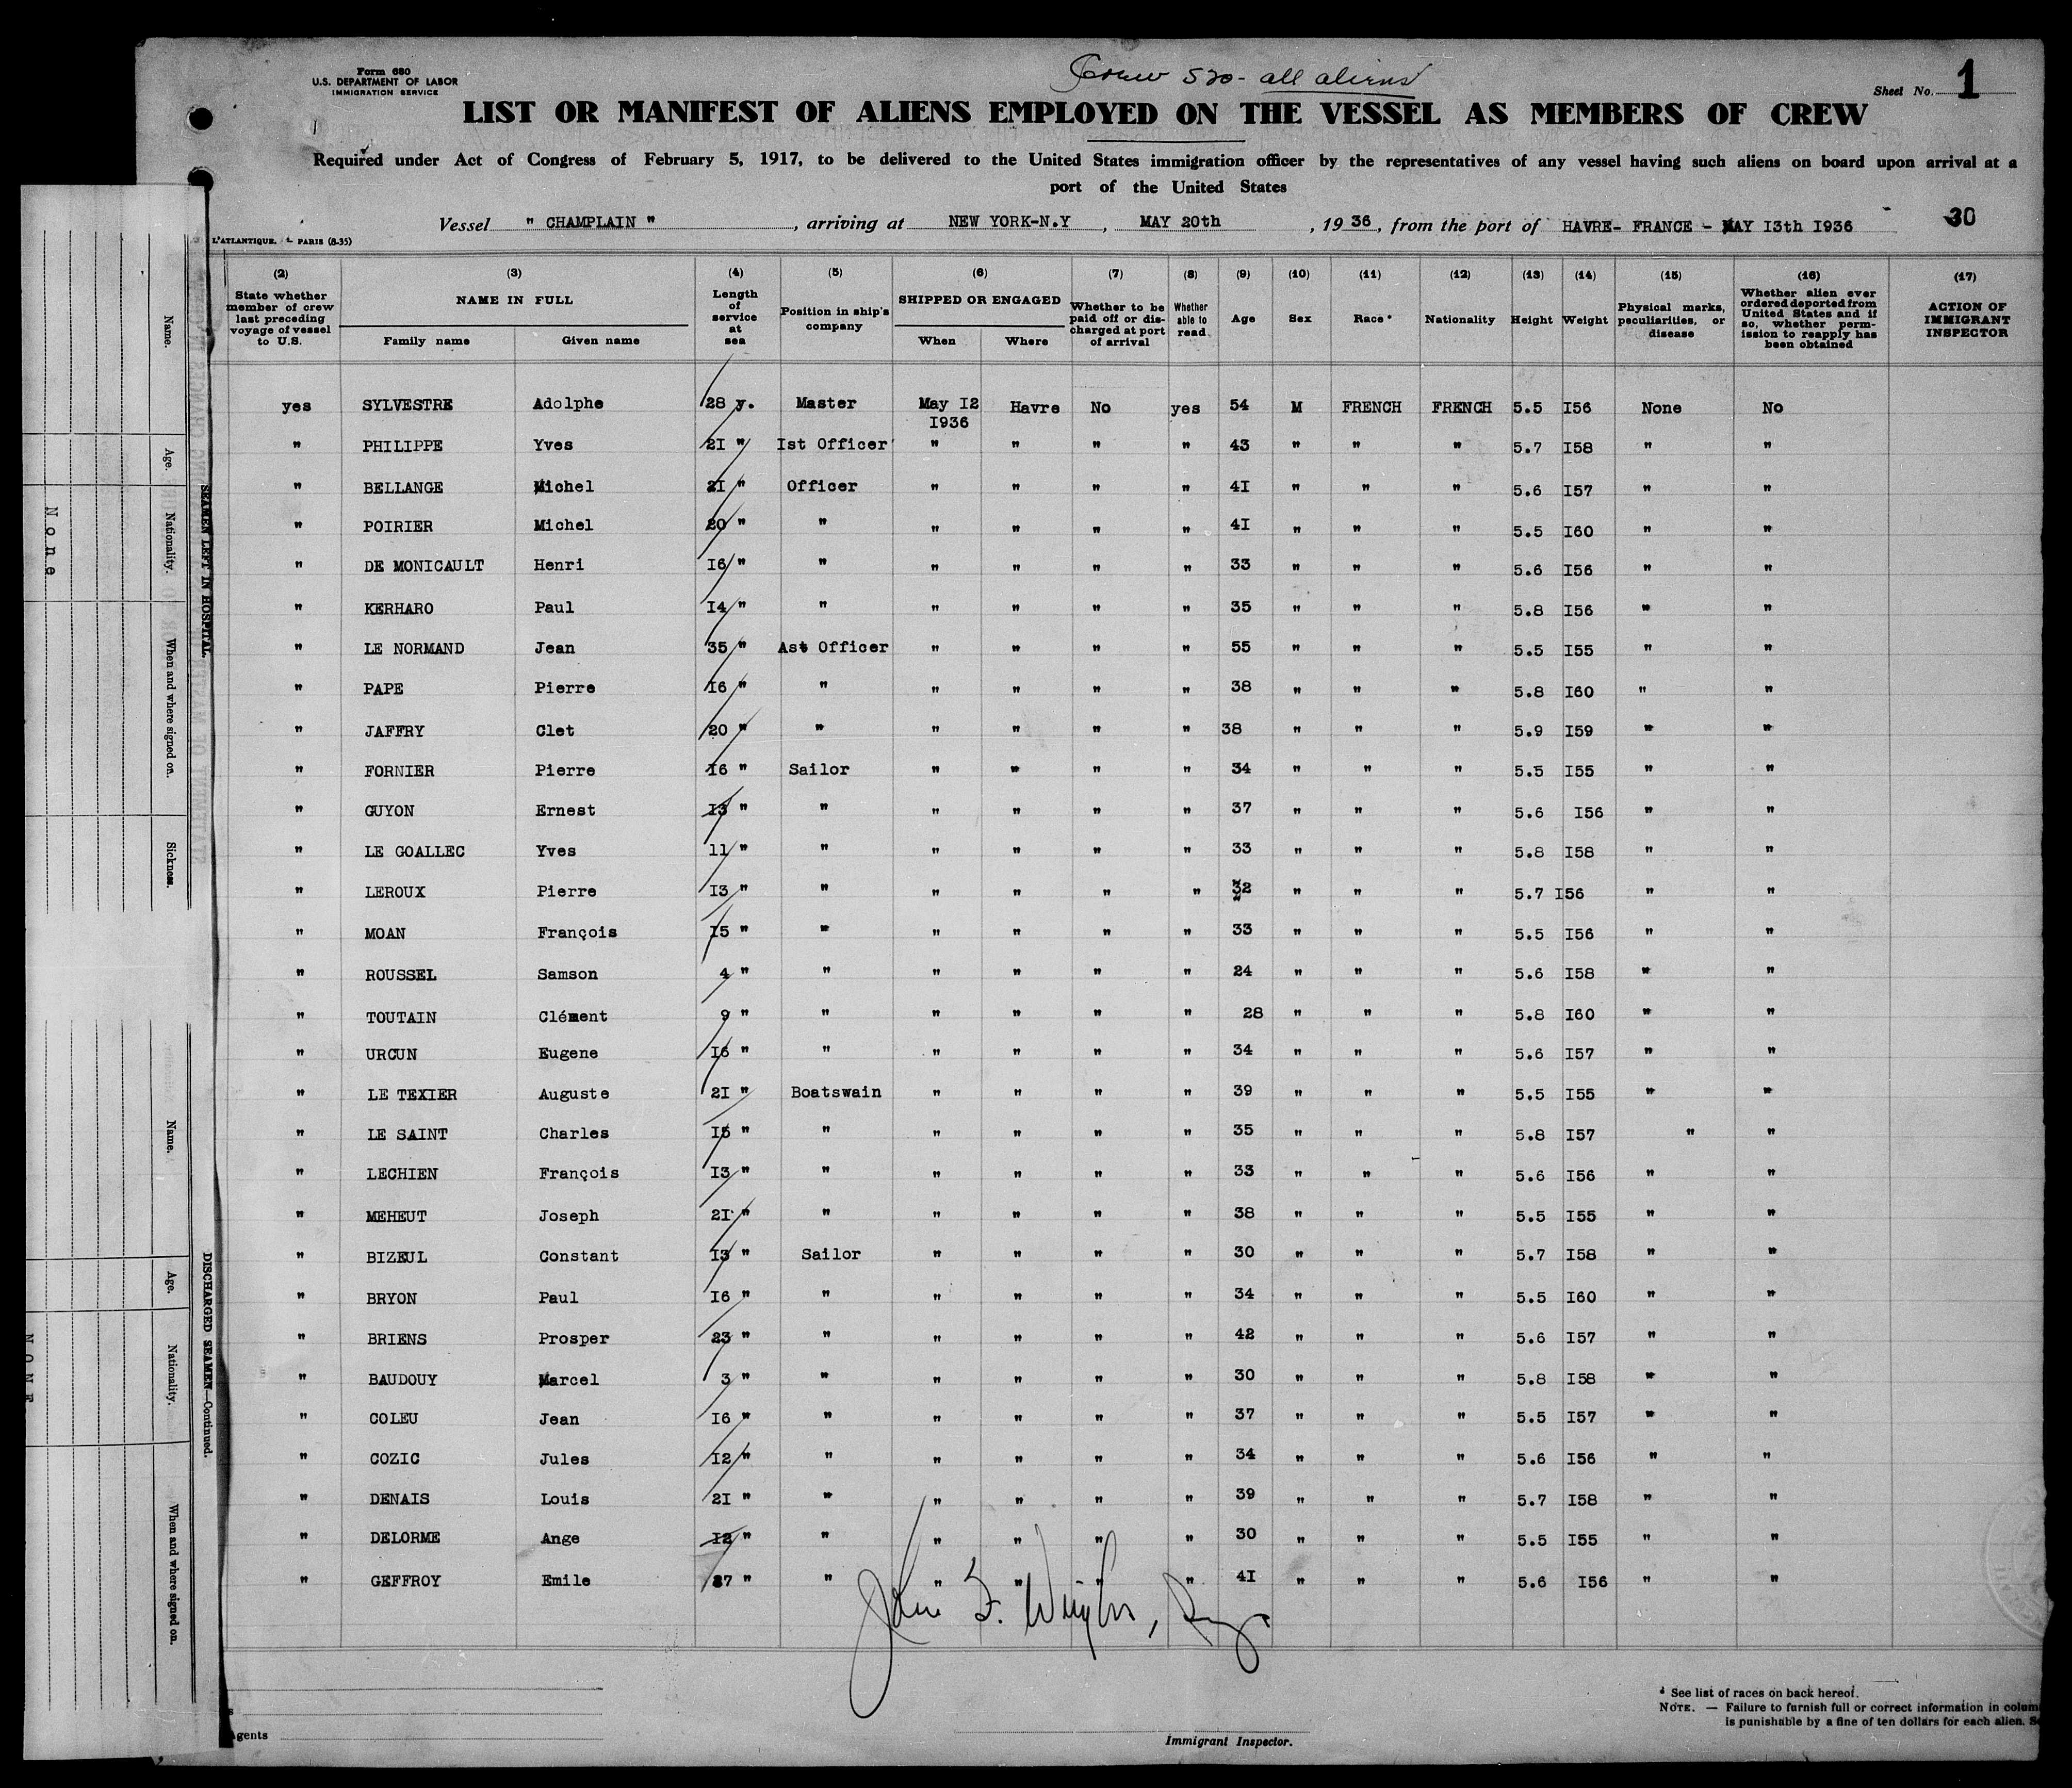 Form 680
U.S. DEPARTMENT OF LABOR
IMMIGRATION SERVICE
Crew 520 - all aliens
Sheet No. 1
LIST OR MANIFEST OF ALIENS EMPLOYED ON THE VESSEL AS MEMBERS OF CREW
Required under Act of Congress of February 5, 1917, to be delivered to the United States immigration officer by the representatives of any vessel having such aliens on board upon arrival at a
port of the United States
Vessel " CHAMPLAIN " , arriving at NEW YORK-N.Y , MAY 20th , 19 36 , from the port of HAVRE- FRANCE - MAY I3th I936
30
L'ATLANTIQUE. - PARIS (8-35)
(2) (3) (4) (5) (6) (7) (8) (9) (10) (11) (12) (13) (14) (15) (16) (17)
State whether member of crew last preceding voyage of vessel to U.S.
NAME IN FULL
Family name Given name
Length of service at sea
Position in ship's company
SHIPPED OR ENGAGED
When Where
Whether to be paid off or discharged at port of arrival
Whether able to read
Age Sex Race * Nationality Height Weight
Physical marks, peculiarities, or disease
Whether alien ever ordered deported from United States and if so, whether permission to reapply has been obtained
ACTION OF IMMIGRANT INSPECTOR
yes SYLVESTRE Adolphe 28 y. Master May I2 I936 Havre No yes 54 M FRENCH FRENCH 5.5 I56 None No
" PHILIPPE Yves 2I " Ist Officer " " " " 43 " " " 5.7 I58 " "
" BELLANGE Michel 2I " Officer " " " " 4I " " " 5.6 I57 " "
" POIRIER Michel 20 " " " " " " 4I " " " 5.5 I60 " "
" DE MONICAULT Henri I6 " " " " " " 33 " " " 5.6 I56 " "
" KERHARO Paul I4 " " " " " " 35 " " " 5.8 I56 " "
" LE NORMAND Jean 35 " Ast Officer " " " " 55 " " " 5.5 I55 " "
" PAPE Pierre I6 " " " " " " 38 " " " 5.8 I60 " "
" JAFFRY Clet 20 " " " " " " 38 " " " 5.9 I59 " "
" FORNIER Pierre I6 " Sailor " " " " 34 " " " 5.5 I55 " "
" GUYON Ernest I3 " " " " " " 37 " " " 5.6 I56 " "
" LE GOALLEC Yves 11 " " " " " " 33 " " " 5.8 I58 " "
" LEROUX Pierre I3 " " " " " " 32 " " " 5.7 I56 " "
" MOAN François I5 " " " " " " 33 " " " 5.5 I56 " "
" ROUSSEL Samson 4 " " " " " " 24 " " " 5.6 I58 " "
" TOUTAIN Clément 9 " " " " " " 28 " " " 5.8 I60 " "
" URCUN Eugene I6 " " " " " " 34 " " " 5.6 I57 " "
" LE TEXIER Auguste 2I " Boatswain " " " " 39 " " " 5.5 I55 " "
" LE SAINT Charles I5 " " " " " " 35 " " " 5.8 I57 " "
" LECHIEN François I3 " " " " " " 33 " " " 5.6 I56 " "
" MEHEUT Joseph 2I " " " " " " 38 " " " 5.5 I55 " "
" BIZEUL Constant I3 " Sailor " " " " 30 " " " 5.7 I58 " "
" BRYON Paul I6 " " " " " " 34 " " " 5.5 I60 " "
" BRIENS Prosper 23 " " " " " " 42 " " " 5.6 I57 " "
" BAUDOUY Marcel 3 " " " " " " 30 " " " 5.8 I58 " "
" COLEU Jean I6 " " " " " " 37 " " " 5.5 I57 " "
" COZIC Jules I2 " " " " " " 34 " " " 5.6 I56 " "
" DENAIS Louis 2I " " " " " " 39 " " " 5.7 I58 " "
" DELORME Ange I2 " " " " " " 30 " " " 5.5 I55 " "
" GEFFROY Emile 27 " " " " " " 4I " " " 5.6 I56 " "
John F.
Agents
Immigrant Inspector.
* See list of races on back hereof.
NOTE. — Failure to furnish full or correct information in
is punishable by a fine of ten dollars for each alien.
SEAMEN LEFT IN HOSPITAL
Name. Age. Nationality. When and where signed on. Sickness.
None
DISCHARGED SEAMEN—Continued.
Name. Age. Nationality. When and where signed on.
NONE